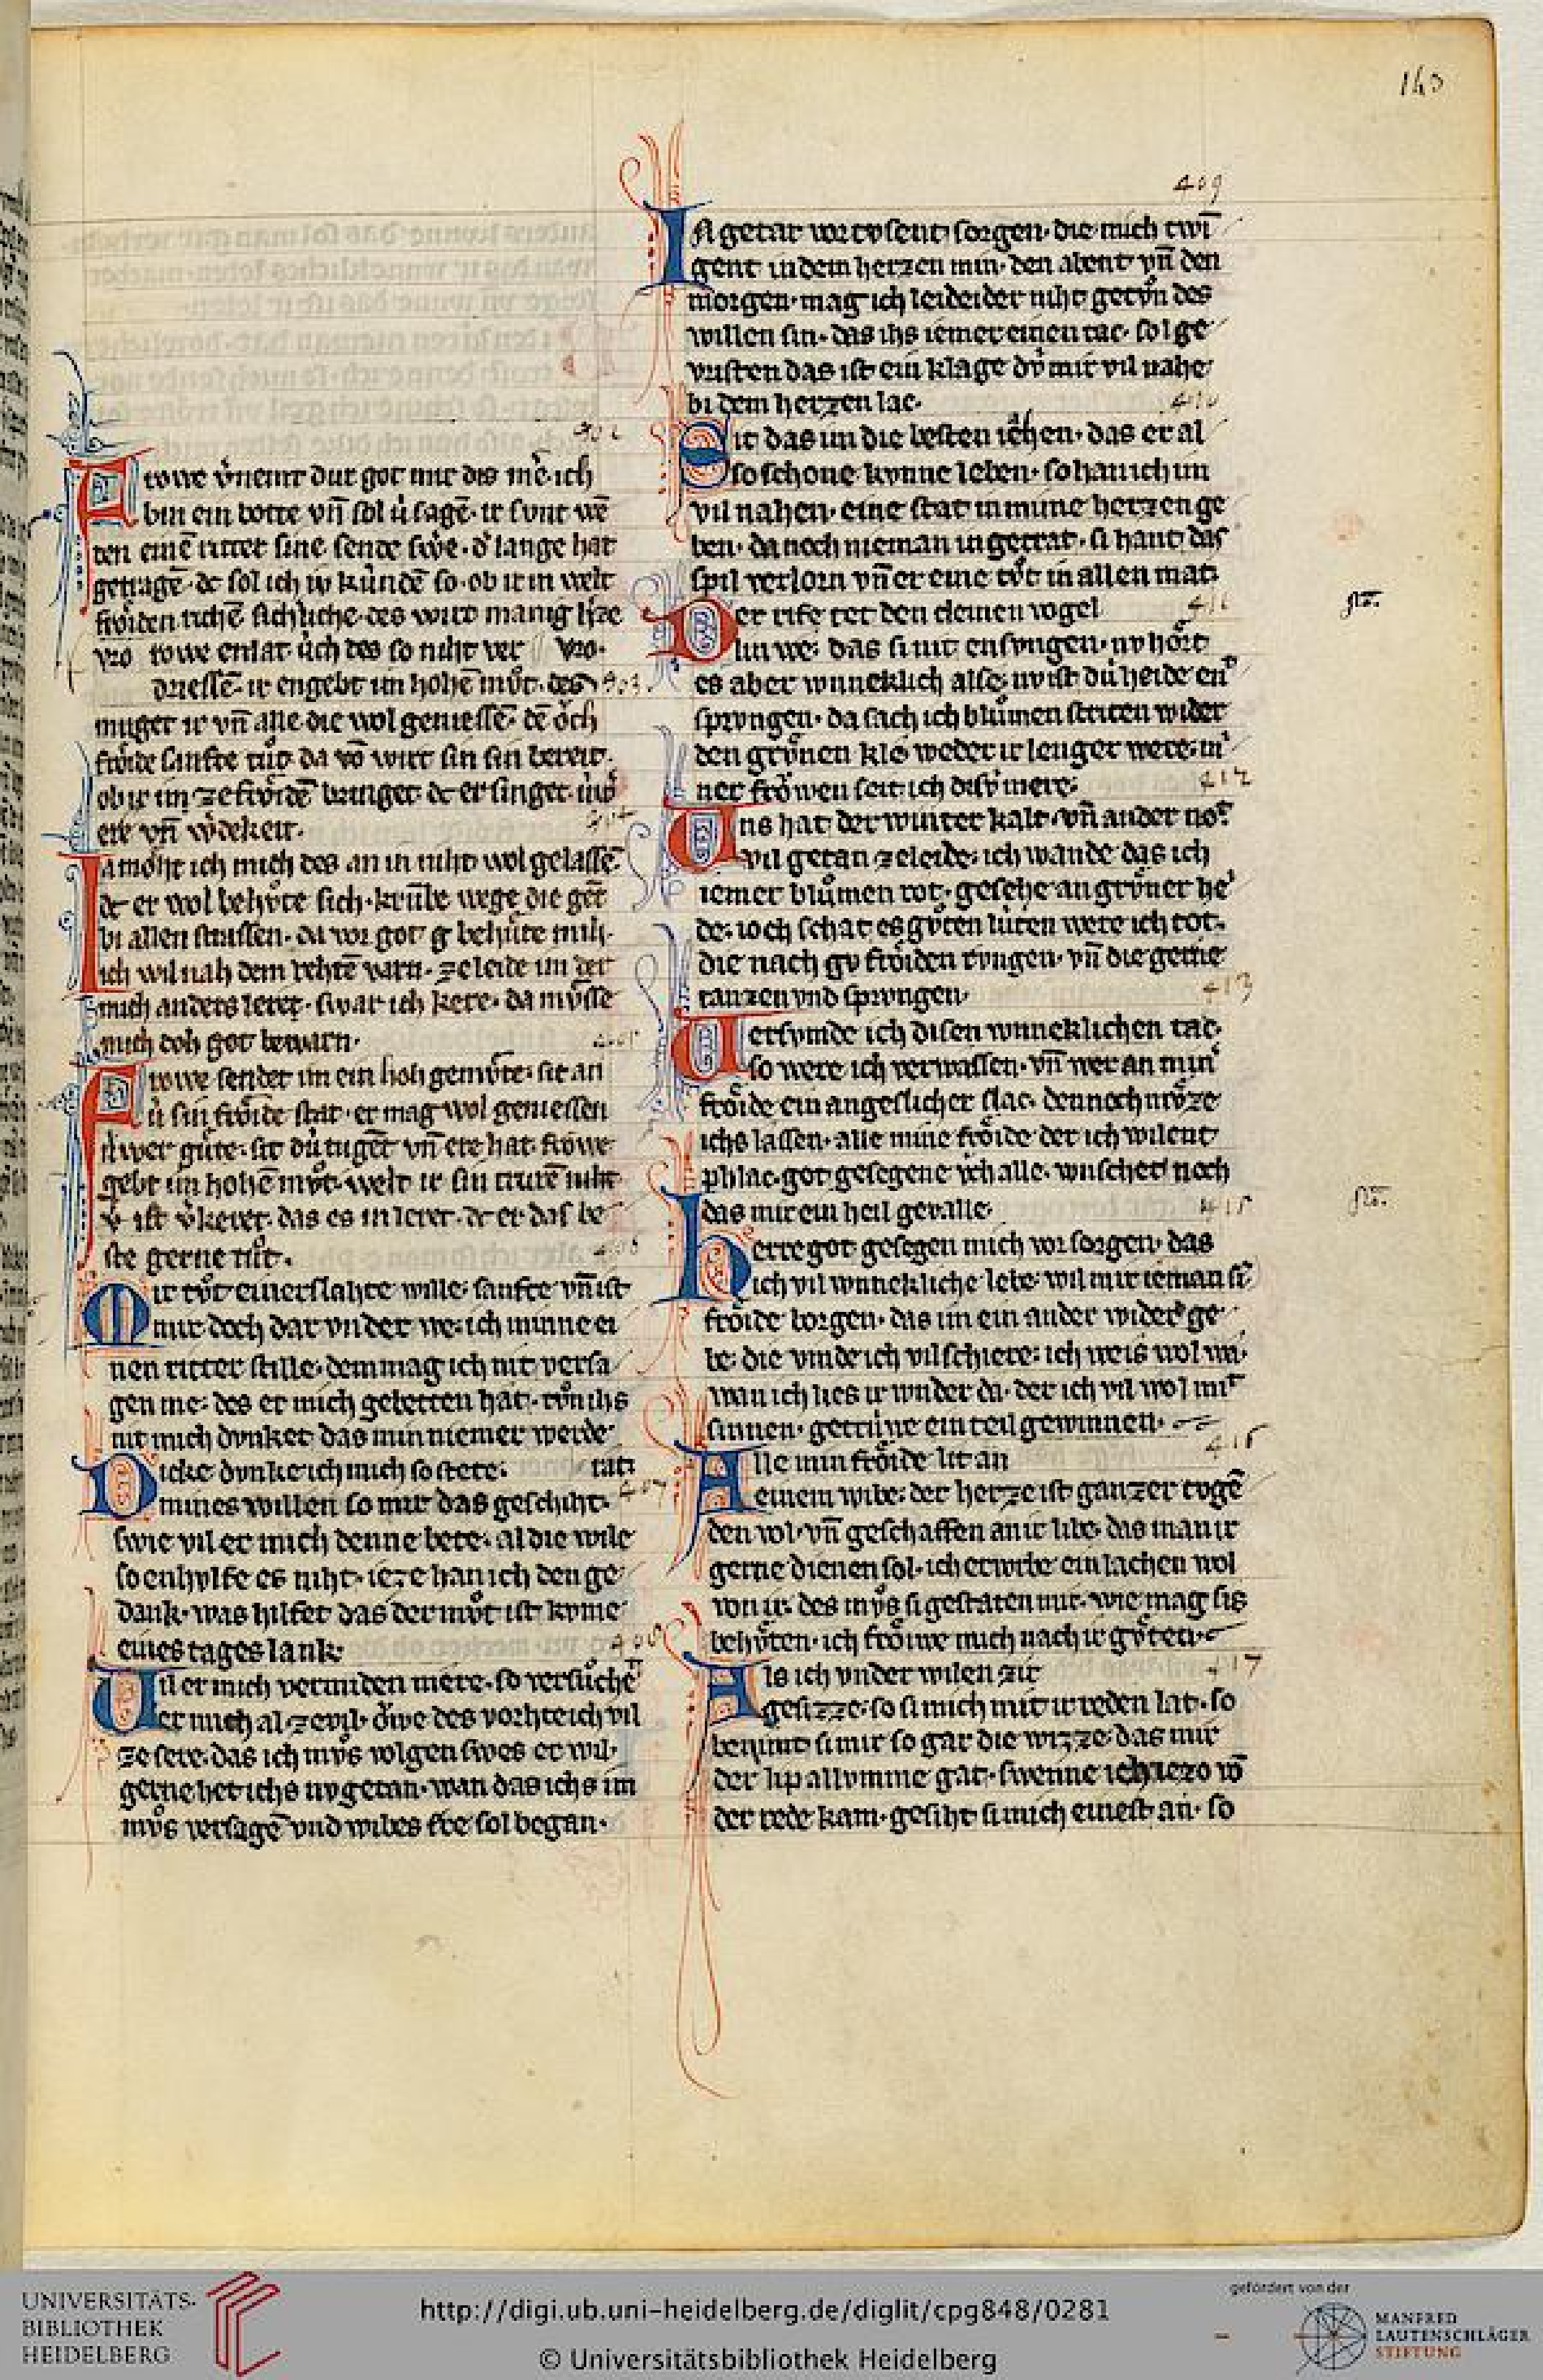 143
402
Frowe v̉nemt dur got mir dis me̾. ich
bin ein botte vn̄ sol ú sagē. ir sunt wē
den einē ritter sine sende swe̾. d̾ lange hat
getragē. dc sol ich iv kúndē so. ob ir in welt
froͤiden richē sich̾liche. des wirt manig h̾ze
vro. 403
Frowe enlat úch des so niht ver
driessē. ir engebt im hohē mvͦt. des
muget ir vn̄ alle die wol geniessē. dē oͮch
froͤide sanfte tuͦt. da vō wirt sin sin bereit.
ob ir im ze froͤidē bringet. dc er singet. iúwe̾
ere vn̄ w̾dekeit.
404
Ia moͤht ich mich des an in niht wol gelassē
dc er wol behvͦte sich. krūbe wege die gēt
bi allen strassen. da vor got g behuͤte mih.
ich wil nah dem rehtē varn. ze leide im der
mich anders leret. swar ich kere. da mvͤsse
mich doh got bewarn.
405
Frowe sendet im ein hoh gemvͤte. sit an
ú sin froͤide stat. er mag wol geniessen
úwer guͤte. sit dú tugēt vn̄ ere hat. frowe
gebt im hohē mvͦt. welt ir sin trurē niht
v̾ ist v̾keret. das es in leret. dc er das be
ste gerne tuͦt.
406
Mir tvͦt einer slahte wille. sanfte vn̄ ist
mir doch dar vnder we. ich minne ei
nen ritter stille. dem mag ich nit versa
gen me. des er mich gebetten hat. tvͦn ihs
nit mich dvnket das min niemer werde
rat.
407
Dicke dvnke ich mich so stete.
mines willen so mir das geschiht.
swie vil er mich denne bete. al die wile
so enhvlfe es niht. ieze han ich den ge
dank. was hilfet das der mvͦt ist kvme
eines tages lank.
408
Wil er mich vermiden mere. so versuͦchet
er mich al ze vil. oͮwe des vorhte ich vil
ze sere. das ich mvͦs volgen swes er wil.
gerne het ichs nv getan. wan das ichs im
mvͦs versagē vnd wibes ere sol began.
409
In getar vor tvsent sorgen. die mich twi
gent in dem herzen min. den abent vn̄ den
morgen. mag ich leider niht getvͦn des
willen sin. das ihs iemer einen tac. sol ge
vristen das ist ein klage dv́ mir vil nahe
bi dem herzen lac.
410
Sit das im die besten iehen. das er al
so schone kvnne leben. so han ich im
vil nahen. eine stat in mime herzen ge
ben. da noch nieman in getrat. si hant das
spil verlorn vn̄ er eine tvͦt in allen mat.
411
Der rife tet den cleinen vogel
lin we. das si nit ensvngen. nv hoͤrt
es aber wuneklich alse. nv ist dú heide en
sprvngen. da sach ich bluͦmen striten wider
den gruͤnen kle weder ir lenger were. mi
ner froͮwen seit ich disv́ mere.
412
Uns hat der winter kalt. vn̄ ander not.
vil getan ze leide. ich wande das ich
iemer bluͦmen rot. gesehe an gruͤner hei
de. ioch schat es gvͦten lúten were ich tot.
die nach gv froͤiden rvngen. vn̄ die gerne
tanzen vnd sprvngen.
413
Versvmde ich disen wuneklichen tac.
so were ich verwassen. vn̄ wer an miner
froͤide ein angeslicher slac. dennoch mvͤze
ichs lassen. alle mine froͤide der ich wilent
phlac. got gesegene v́ch alle. wúschet noch
das mir ein heil gevalle.
415
Herre got gesegen mich vor sorgen. das
ich vil wunekliche lebe. wil mir ieman si
froͤide borgen. das im ein ander wider ge
be. die vinde ich vil schiere. ich weis wol wa.
wan ich lies ir wnder da. der ich vil wol mit
sinnen. getrúwe ein teil gewinnen.
416
Alle min froͤide lit an
einem wibe. der herze ist ganzer tvgē
den vol. vn̄ geschaffen an ir libe. das man ir
gerne dienen sol. ich erwirbe ein lachen wol
von ir. des mvͦs si gestaten mir. wie mag sis
behvͤten. ich froͤiwe mich nach ir gvͤten.
417
Als ich vnder wilen zir
gesizze. so si mich mit ir reden lat. so
benimt si mir so gar die wizze. das mir
der lip allvmme gat. swenne ich iezo wn
der rede kam. gesiht si mich einest an. so
UNIVERSITÄTS-
BIBLIOTHEK
HEIDELBERG
http://digi.ub.uni-heidelberg.de/diglit/cpg848/0281
© Universitätsbibliothek Heidelberg
gefördert von der
MANFRED
LAUTENSCHLÄGER
STIFTUNG